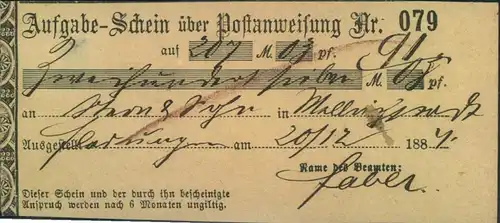 Aufgabe-Schein über Postanweisung Nr. 079
91
auf 207 M. 03 pf.
Zweihundert sieben M. 03 pf.
an Stern & Sohn in
Ausgestellt am 20/12 1884.
Name des Beamten:
Faber
Dieser Schein und der durch ihn bescheinigte
Anspruch werden nach 6 Monaten ungiltig.